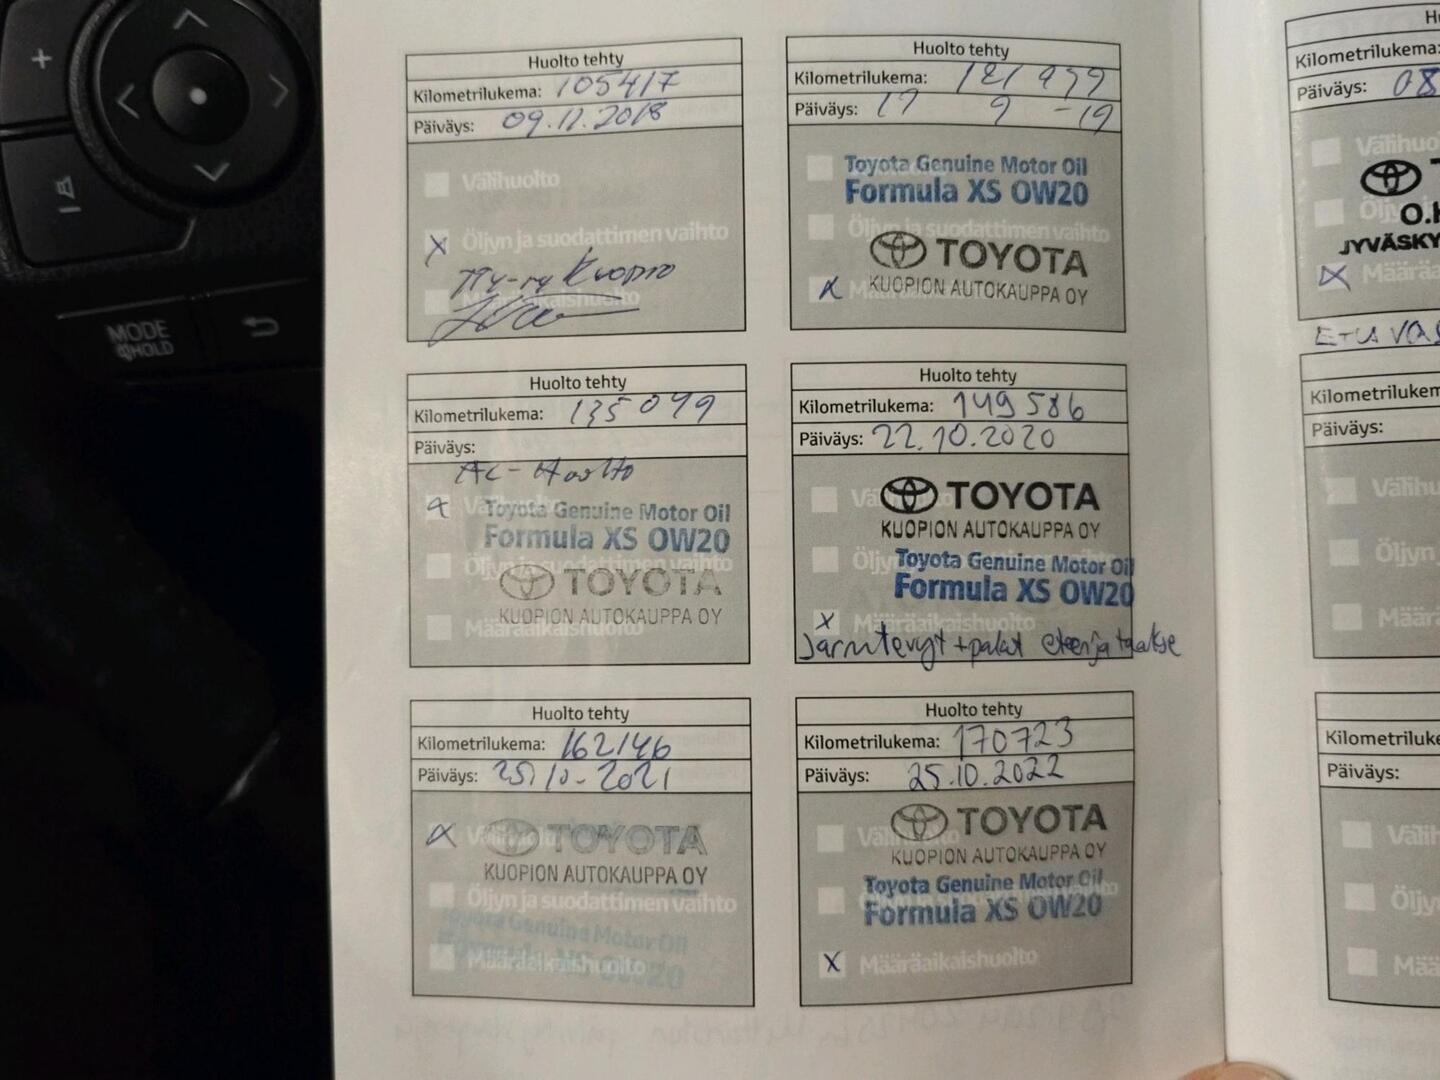 +
MODE
HOLD
Huolto tehty
Kilometrilukema: 105417
Päiväys: 09.11.2018
Välihuolto
X Öljyn ja suodattimen vaihto
Kuopio
Määräaikaishuolto
Huolto tehty
Kilometrilukema: 121999
Päiväys: 17 9 -19
Toyota Genuine Motor Oil
Formula XS 0W20
Öljyn ja suodattimen vaihto
TOYOTA
X KUOPION AUTOKAUPPA OY
Huolto tehty
Kilometrilukema: 135049
Päiväys:
AC-Huolto
X Välihuolto
Toyota Genuine Motor Oil
Formula XS 0W20
Öljyn ja suodattimen vaihto
TOYOTA
KUOPION AUTOKAUPPA OY
Määräaikaishuolto
Huolto tehty
Kilometrilukema: 149586
Päiväys: 22.10.2020
TOYOTA
KUOPION AUTOKAUPPA OY
Toyota Genuine Motor Oil
Formula XS 0W20
X Määräaikaishuolto
Jarrulevyt + palat eteen ja taakse
Huolto tehty
Kilometrilukema: 162146
Päiväys: 25/10-2021
X Välihuolto
TOYOTA
KUOPION AUTOKAUPPA OY
Öljyn ja suodattimen vaihto
Toyota Genuine Motor Oil
Formula XS 0W20
Määräaikaishuolto
Huolto tehty
Kilometrilukema: 170723
Päiväys: 25.10.2022
Välihuolto
TOYOTA
KUOPION AUTOKAUPPA OY
Toyota Genuine Motor Oil
Formula XS 0W20
X Määräaikaishuolto
Kilometrilukema:
Päiväys: 08
Välihuo
Öljy
O.
JYVÄSKY
X Määräa
Kilometrilukem
Päiväys:
Välihu
Öljyn
Määrä
Kilometriluke
Päiväys:
Välih
Öljy
Mää